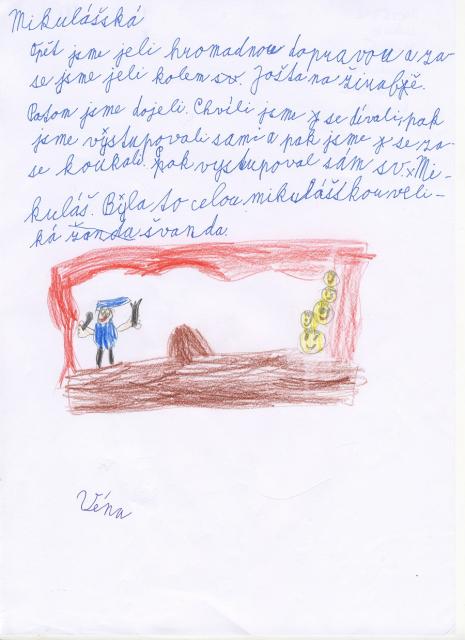 Mikulášská
Opět jsme jeli hromadnou dopravou a za-
se jsme jeli kolem sv. Jošta na žirabě.
Patom jsme dojeli. Chvíli jsme se dívali, pak
jsme výstupovali sami a pak jsme se za-
se koukali. Pak vystupoval sám sv. Mi-
kuláš. Byla to celou mikulášskou veli-
ká švanda.
Véna